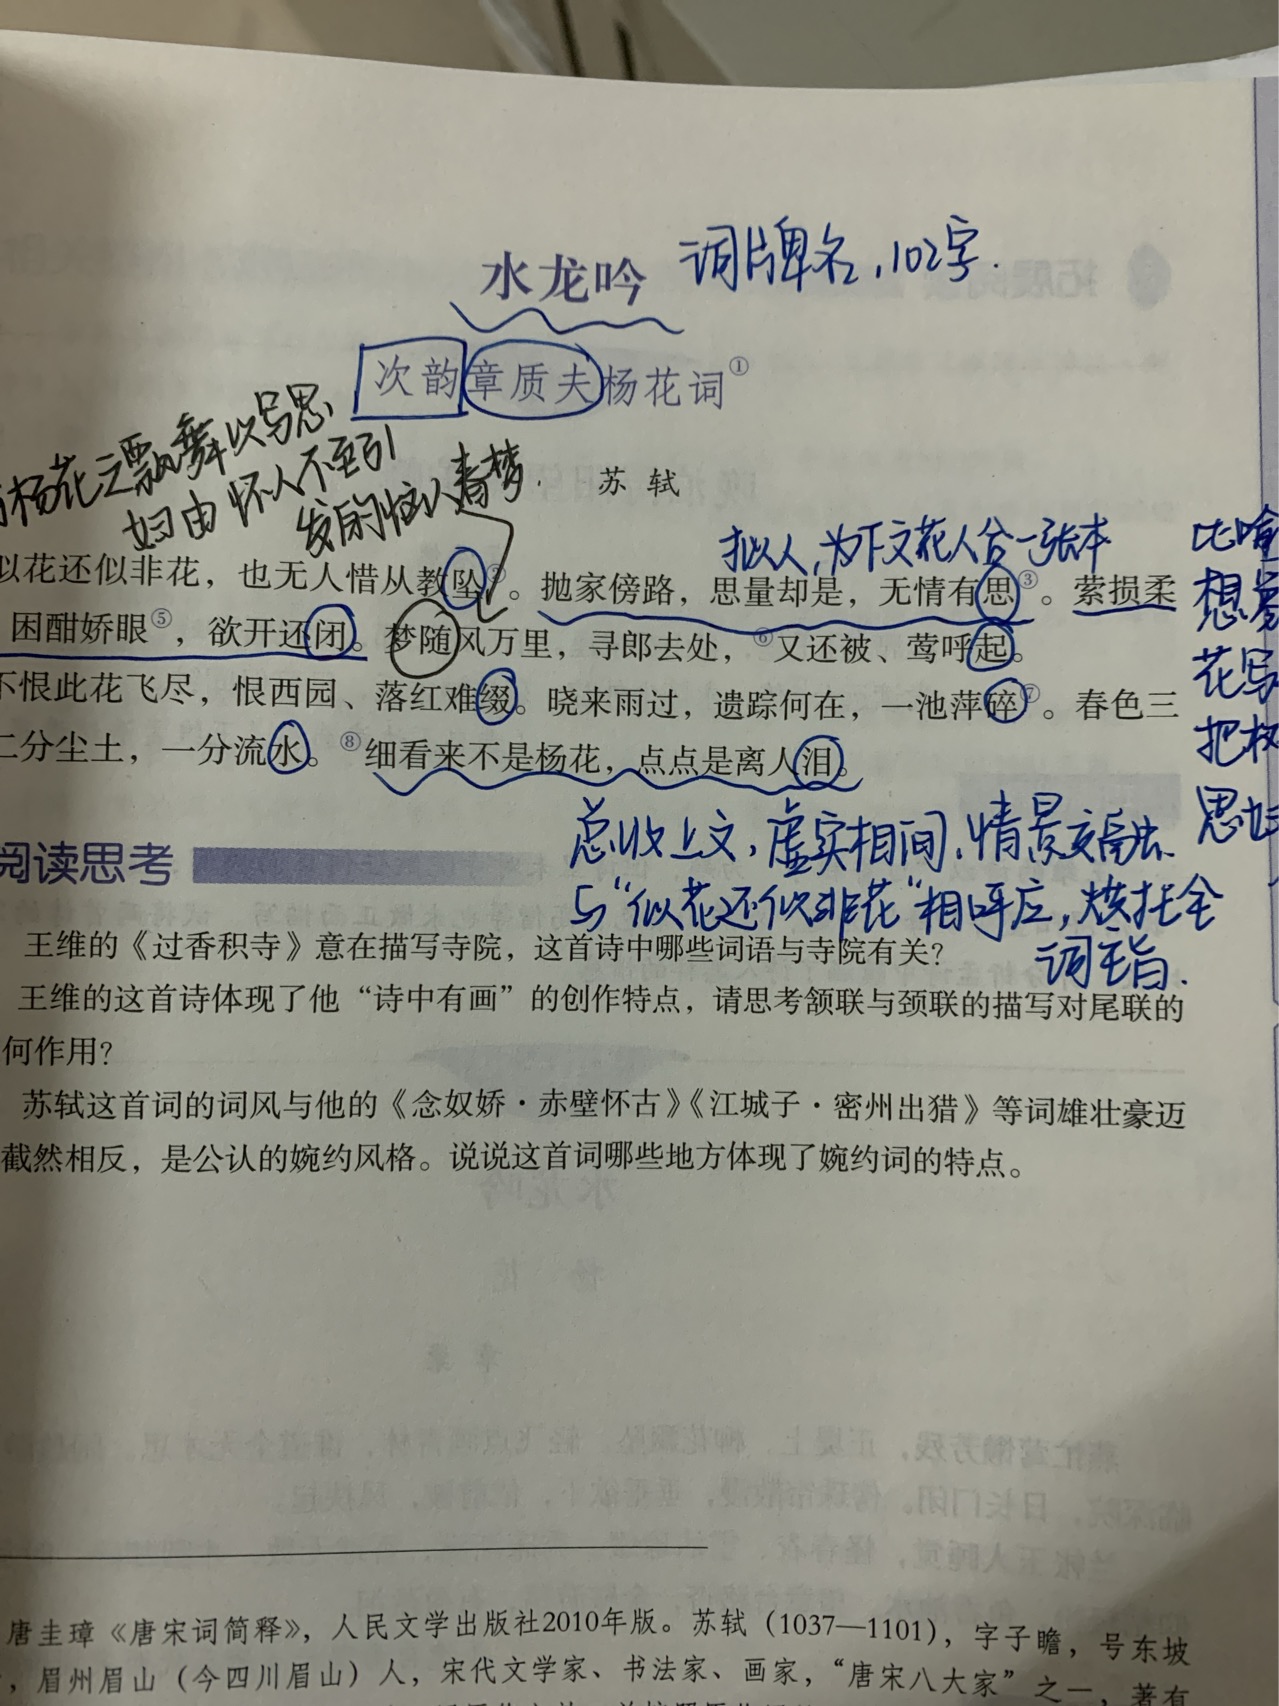 水龙吟 词牌名,102字.
次韵章质夫杨花词①
杨花之飘舞以写思
妇由怀人不至引
发的恼人春梦.
苏轼
拟人,为下文花人合一张本
比喻
想
花写
把
思妇
似花还似非花，也无人惜从教坠②。抛家傍路，思量却是，无情有思③。萦损柔
困酣娇眼⑤，欲开还闭。梦随风万里，寻郎去处，⑥又还被、莺呼起。
不恨此花飞尽，恨西园、落红难缀。晓来雨过，遗踪何在，一池萍碎⑦。春色三
二分尘土，一分流水。⑧细看来不是杨花，点点是离人泪。
总收上文,虚实相间,情景交融.
与“似花还似非花”相呼应,烘托全
词主旨.
阅读思考
王维的《过香积寺》意在描写寺院，这首诗中哪些词语与寺院有关？
王维的这首诗体现了他“诗中有画”的创作特点，请思考颔联与颈联的描写对尾联的
何作用？
苏轼这首词的词风与他的《念奴娇·赤壁怀古》《江城子·密州出猎》等词雄壮豪迈
截然相反，是公认的婉约风格。说说这首词哪些地方体现了婉约词的特点。
唐圭璋《唐宋词简释》，人民文学出版社2010年版。苏轼（1037—1101），字子瞻，号东坡
，眉州眉山（今四川眉山）人，宋代文学家、书法家、画家，“唐宋八大家”之一，著有